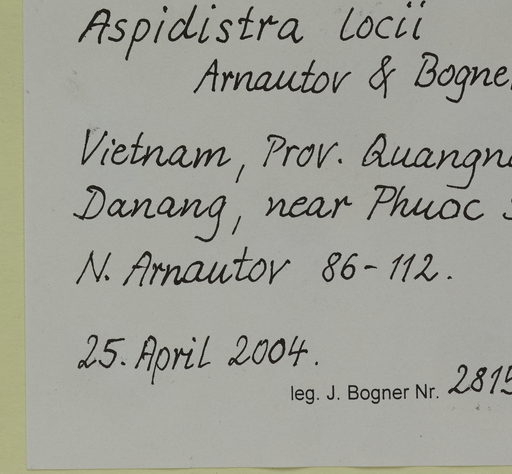 Aspidistra locii
Arnautov & Bogne
Vietnam, Prov. Quangn
Danang, near Phuoc
N. Arnautov 86-112.
25. April 2004.
leg. J. Bogner Nr. 2815